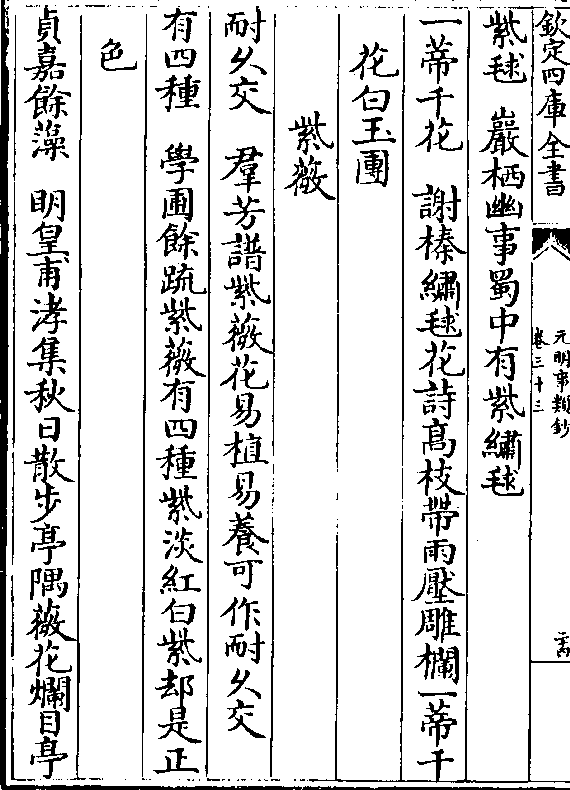 欽定四庫全書
元明事類鈔
卷三十三
紫毬　巖栖幽事蜀中有紫繡毬
一蒂千花　謝榛繡毬花詩高枝帶雨壓雕欄一蒂千
花白玉團
紫薇
耐久交　羣芳譜紫薇花易植易養可作耐久交
有四種　學圃餘疏紫薇有四種紫淡紅白紫却是正
色
貞嘉餘藻　明皇甫涍集秋日散步亭隅薇花爛目亭